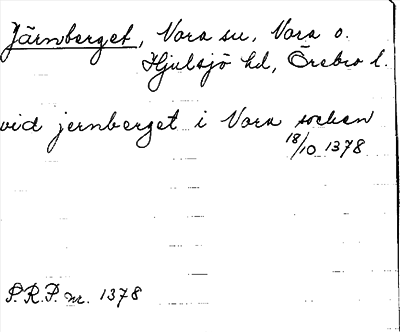 Järnberget, Nora su, Nora o.
Hjulsjö hd, Örebro l.
vid jernberget i Nora socken
18/10 1378
P.R.P. nr. 1378